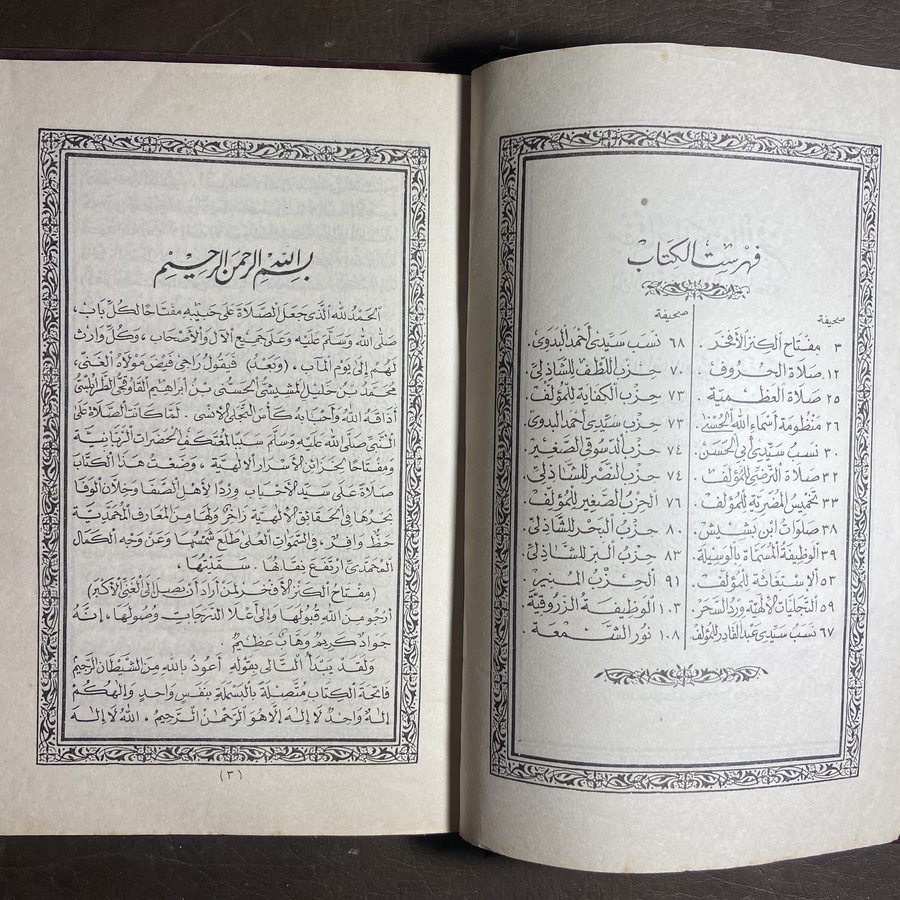 فهرست الكتاب
صحيفة
٣ مفتاح الكنز الأفخر
١٢ صلاة الحروف .
٢٥ صلاة العظمية
٢٦ منظومة أسماء الله الحسنى .
٣٠ نسب سيدي أبي الحسن .
٣٢ صلاة الترضي للمؤلف .
٣٣ تخميس المضرية للمؤلف .
٣٨ صلوات ابن بشيش .
٣٩ الوظيفة المسماة بالوسيلة
٥٣ الإستغاثة للمؤلف .
٥٩ التجليات الإلهية ورد السحر .
٦٧ نسب سيدي عبد القادر للمؤلف
صحيفة
٦٨ نسب سيدي أحمد البدوي .
٧٠ حزب اللطف للشاذلي .
٧٣ حزب الكفاية للمؤلف .
٧٣ حزب سيدي أحمد البدوي .
٧٤ حزب الدسوقي الصغير .
٧٤ حزب النصر للشاذلي .
٧٦ الحزب الصغير للمؤلف .
٨٠ حزب البحر للشاذلي .
٨٣ حزب البر للشاذلي .
٩١ الحزب المنير .
١٠٣ الوظيفة الزروقية .
١٠٨ نور الشمعة .
بسم الله الرحمن الرحيم
الحمد لله الذي جعل الصلاة على حبيبه مفتاحا لكل باب ،
صلى الله وسلم عليه وعلى جميع الآل والأصحاب ، وكل وارث
لهم إلى يوم المآب ، (وبعد) فيقول راجي فيض مولاه الغني ،
محمد بن خليل المشيشي الحسني بن ابراهيم القاوقجي الطرابلسي
أذاقه الله وأحبابه كأس التجلي الأنسي . لما كانت الصلاة على
النبي صلى الله عليه وسلم سببا لمعتكف الحضرات الربانية
ومفتاحا لخزائن الأسرار الإلهية ، وضعت هذا الكتاب
صلاة على سيد الأحباب وردا لأهل الصفا وخلان الوفا
بحرها في الحقائق الإلهية زاخر ولها من المعارف المحمدية
حظ وافر . في السموات العلى طلع شمسها وعن وجه الكمال
المحمدي ارتفع نقابها . سميتها ،
(مفتاح الكنز الأفخر لمن أراد أن يصل إلى الغني الأكبر)
أرجو من الله قبولها وإلى أعلا الدرجات وصولها ، إنه
جواد كريم وهاب عظيم
ولقد يبتدأ التالي بقوله أعوذ بالله من الشيطان الرجيم
فاتحة الكتاب متصلة بالبسملة بنفس واحد وإلهكم
إله واحد لا إله إلا هو الرحمن الرحيم ، الله لا إله
(٣)